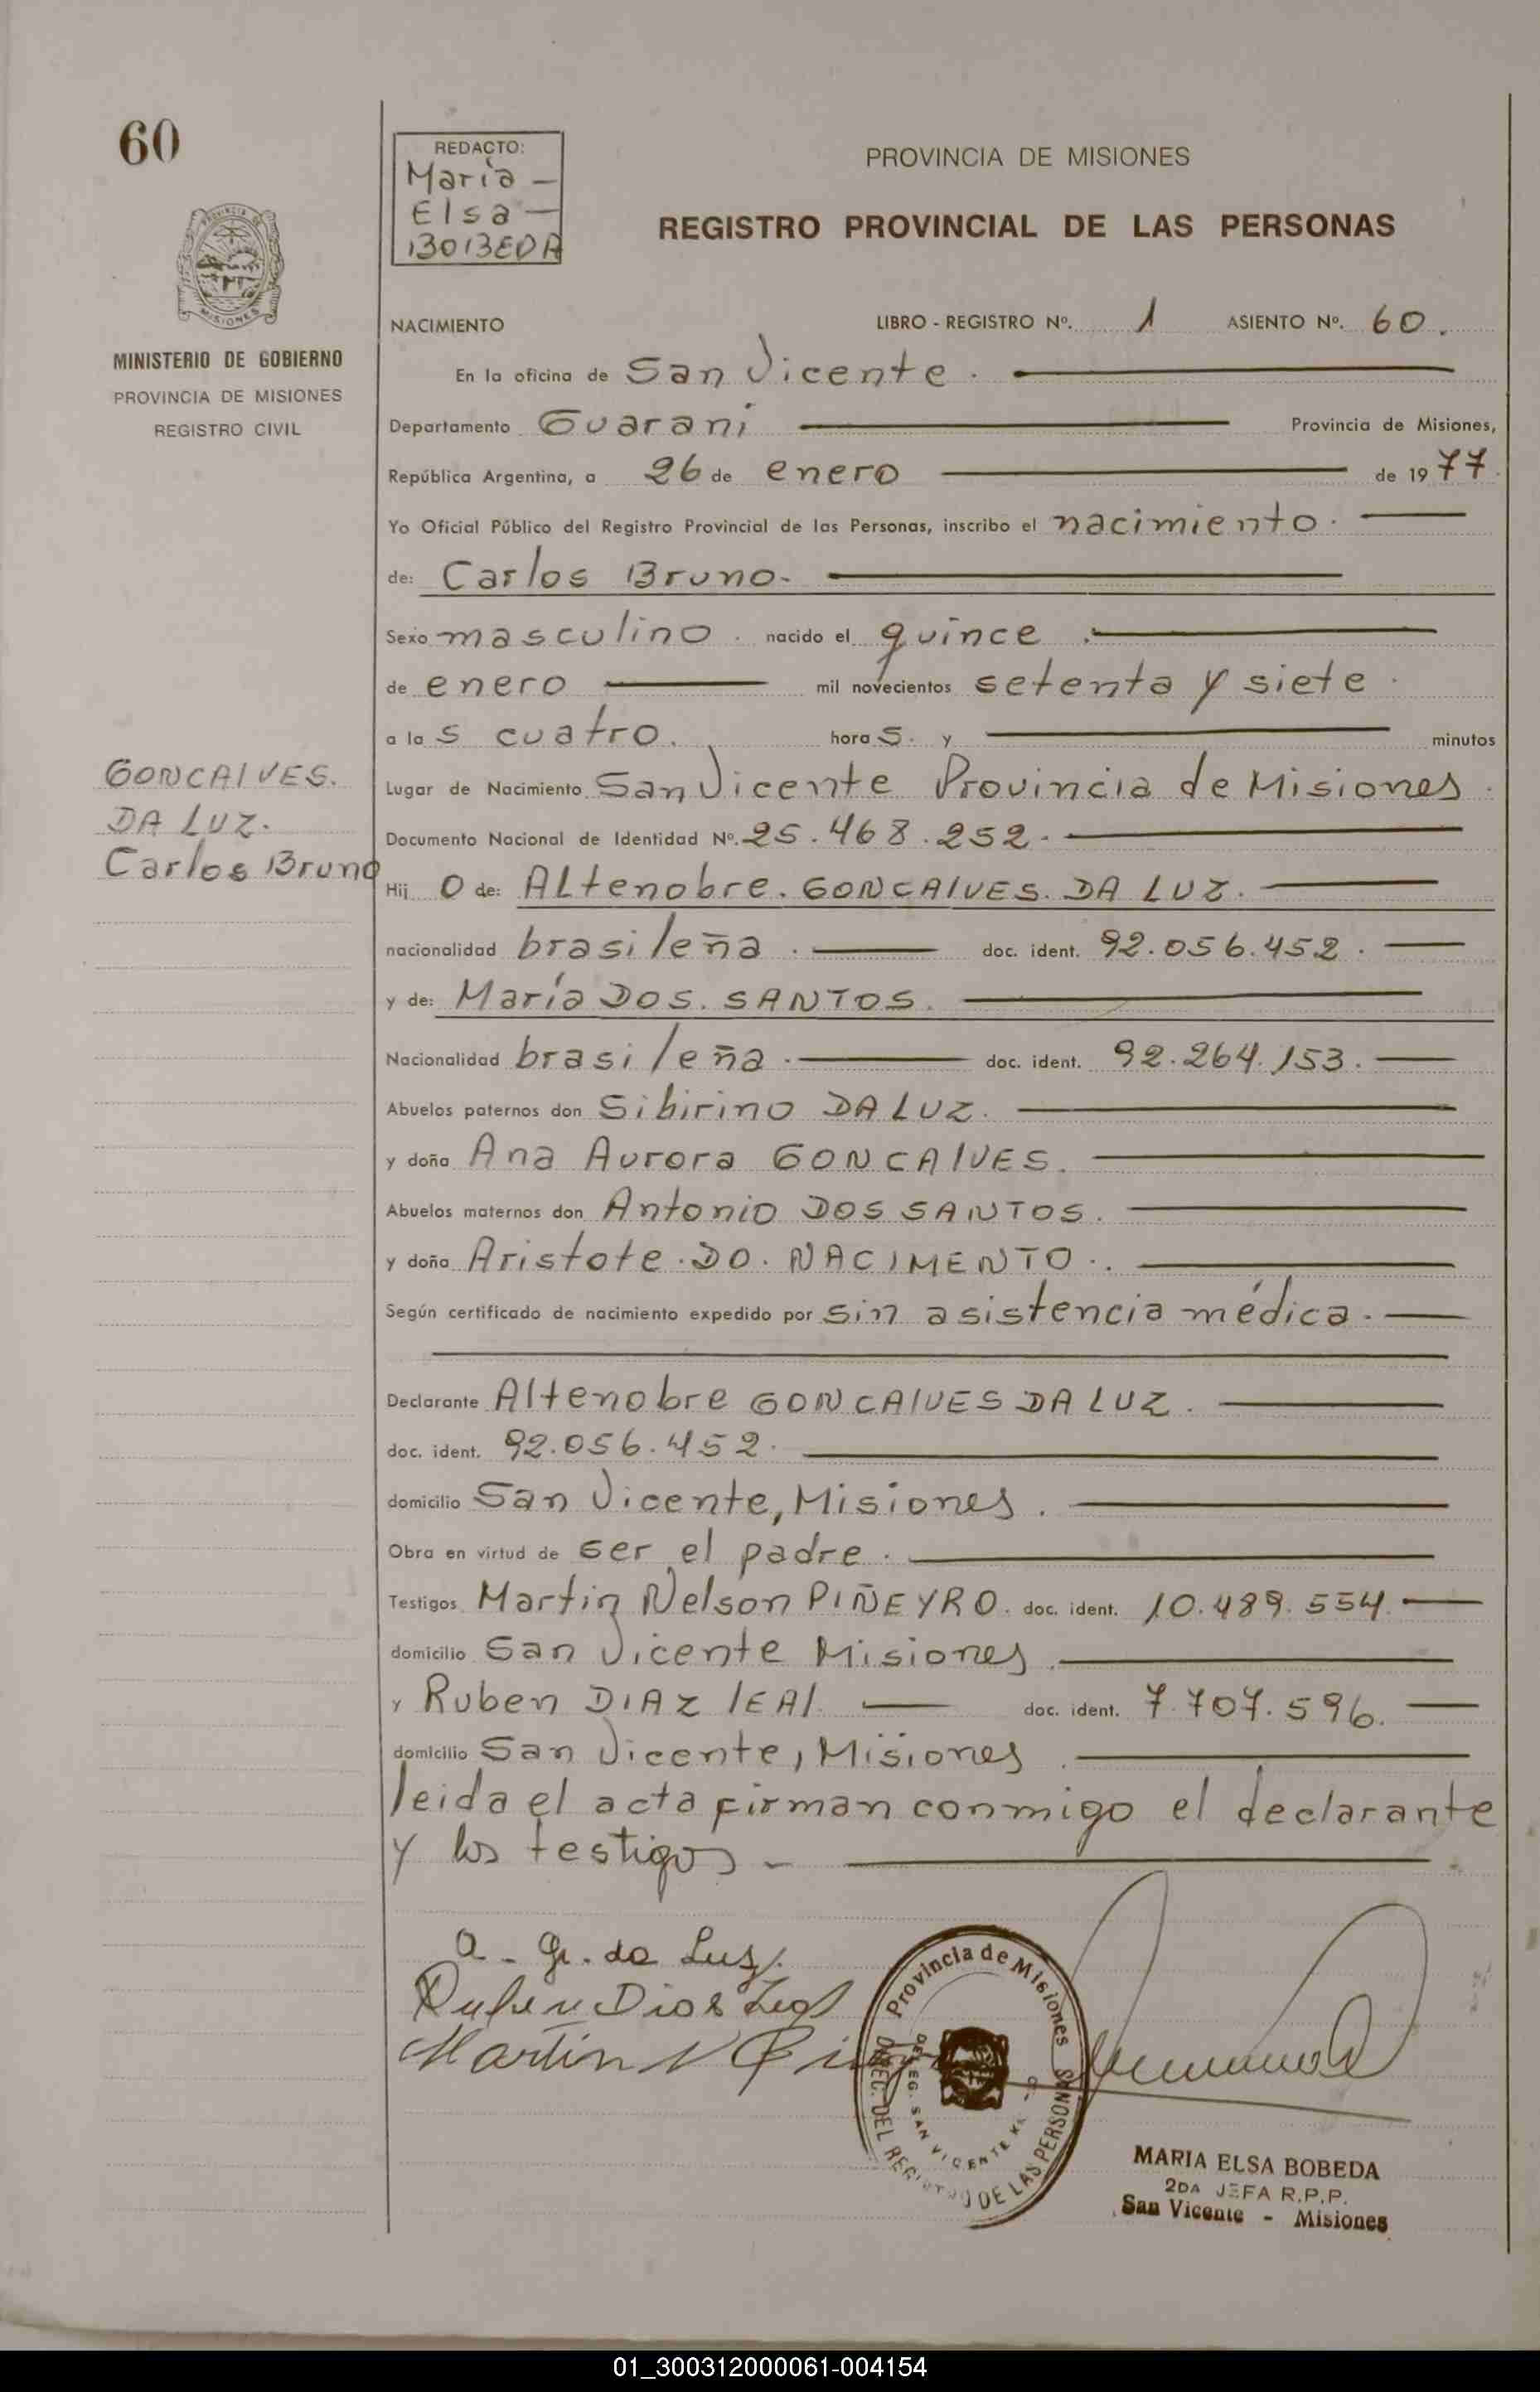 60
REDACTO:
María -
Elsa -
BOBEDA
PROVINCIA DE MISIONES
REGISTRO PROVINCIAL DE LAS PERSONAS
PROVINCIA DE
MISIONES
MINISTERIO DE GOBIERNO
PROVINCIA DE MISIONES
REGISTRO CIVIL
NACIMIENTO LIBRO - REGISTRO Nº. 1 ASIENTO Nº. 60.
En la oficina de San Vicente.
Departamento Guarani Provincia de Misiones,
República Argentina, a 26 de enero de 1977.
Yo Oficial Público del Registro Provincial de las Personas, inscribo el nacimiento.
de: Carlos Bruno-
Sexo masculino. nacido el quince.
de enero mil novecientos setenta y siete.
a las cuatro. horas. y minutos
GONCAlVES.
DA LUZ.
Carlos Bruno
Lugar de Nacimiento San Vicente Provincia de Misiones.
Documento Nacional de Identidad Nº. 25.468.252.
Hijo de: ALtenobre. GONCAlVES. DA LUZ.
nacionalidad brasileña. doc. ident. 92.056.452.
y de: María DOS. SANTOS.
Nacionalidad brasileña. doc. ident. 92.264.153.
Abuelos paternos don Sibirino DA LUZ.
y doña Ana Aurora GONCAlVES.
Abuelos maternos don Antonio DOS SANTOS.
y doña Aristote. DO. NACIMENTO..
Según certificado de nacimiento expedido por sin asistencia médica.
Declarante Altenobre GONCAlVES DA LUZ.
doc. ident. 92.056.452.
domicilio San Vicente, Misiones.
Obra en virtud de ser el padre.
Testigos Martin Nelson PIÑEYRO. doc. ident. 10.489.554.
domicilio San Vicente Misiones.
y Ruben DIAZ lEAl. doc. ident. 7.707.596.
domicilio San Vicente, Misiones.
leida el acta firman conmigo el declarante
y los testigos-
a - g. da Luz.
Ruben Dias Leal
Martin N
Provincia de Misiones
DIREC. DEL REGISTRO DE LAS PERSONAS
DELEG. SAN VICENTE
MARIA ELSA BOBEDA
2DA JEFA R.P.P.
San Vicente - Misiones
01_300312000061-004154